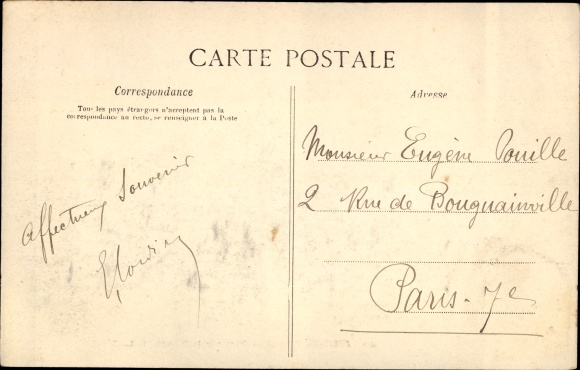 CARTE POSTALE
Correspondance
Tous les pays étrangers n'acceptent pas la
correspondance au recto, se renseigner à la Poste
Adresse
Affectueux Souvenir
Monsieur Eugène Pouille
2 Rue de Bougainville
Paris - 7e